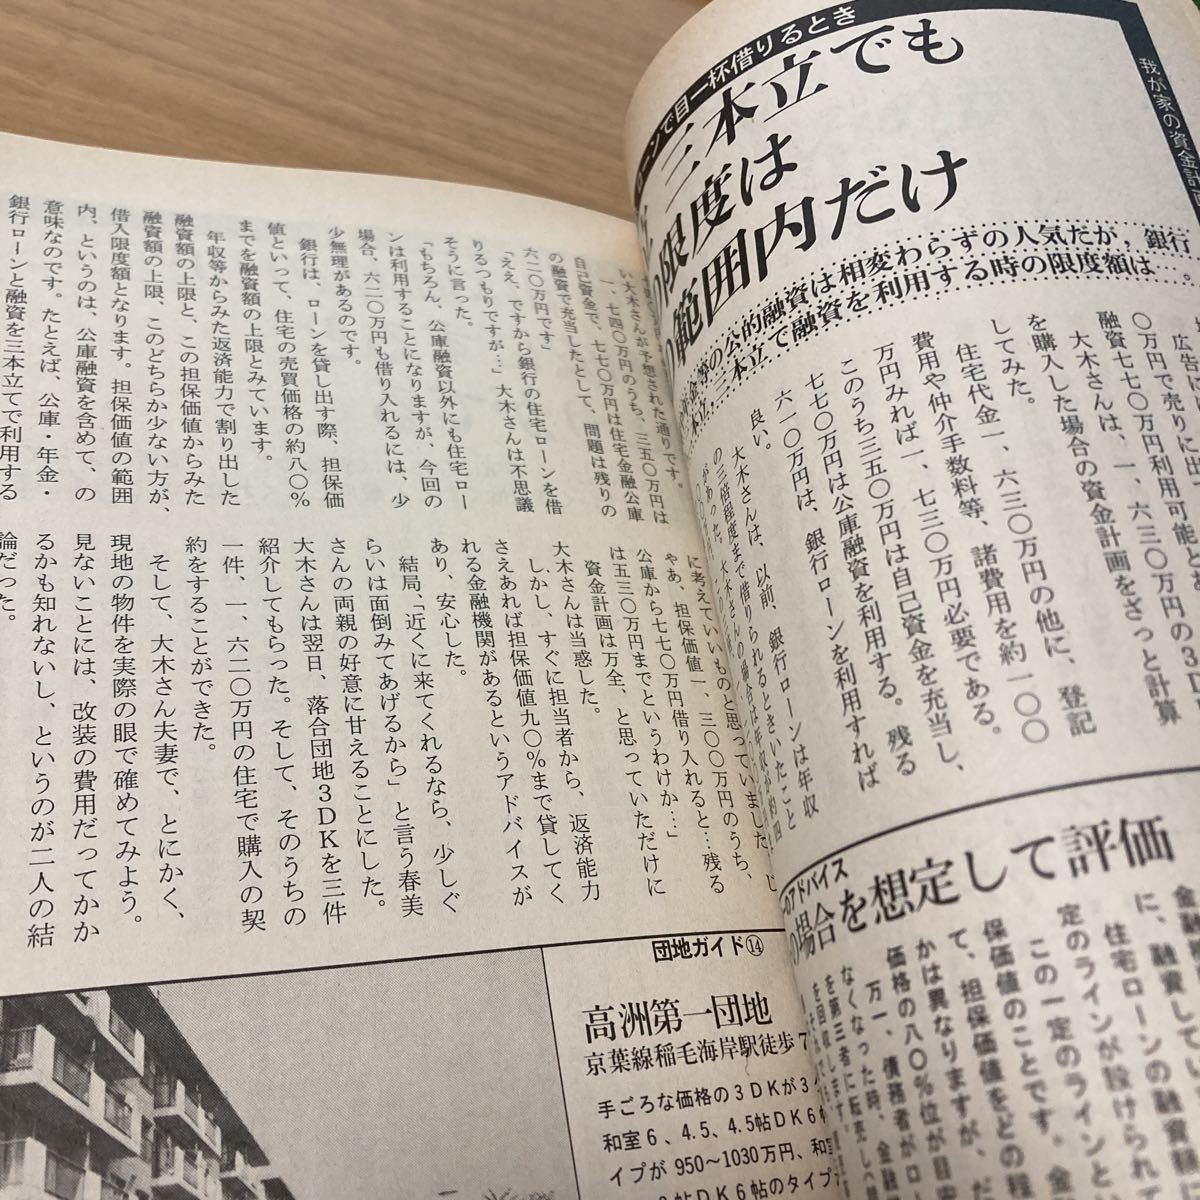 我が家の資金計
ーンで目一杯借りるとき
三本立でも
限度は
範囲内だけ
年金等の公的融資は相変わらずの人気だが，銀行
本立、三本立で融資を利用する時の限度額は…。
〇万円で売りに出
融資七七〇万円利用可能と
大木さんは、一、六三〇万円の3D
を購入した場合の資金計画をざっと計算
してみた。
住宅代金一、六三〇万円の他に、登記
費用や仲介手数料等、諸費用を約一〇〇
万円みれば一、七三〇万円必要である。
このうち三五〇万円は自己資金を充当し、
七七〇万円は公庫融資を利用する。残る
六一〇万円は、銀行ローンを利用すれば
良い。
大木さんは、以前、銀行ローンは年収
の三倍程度まで借りられるときいたこと
があった。
い大木さんが予想された通りです。
一、七四〇万円のうち、三五〇万円は
自己資金で、七七〇万円は住宅金融公庫
の融資で充当したとして、問題は残りの
六二〇万円です」
「ええ、ですから銀行の住宅ローンを借
りるつもりですが…」大木さんは不思議
そうに言った。
「もちろん、公庫融資以外にも住宅ロー
ンは利用することになりますが、今回の
場合、六二〇万円も借り入れるには、少
少無理があるのです。
銀行は、ローンを貸し出す際、担保価
値といって、住宅の売買価格の約八〇％
までを融資額の上限とみています。
年収等からみた返済能力で割り出した
融資額の上限と、この担保価値からみた
融資額の上限、このどちらか少ない方が、
借入限度額となります。担保価値の範囲
内、というのは、公庫融資を含めて、の
意味なのです。たとえば、公庫・年金・
銀行ローンと融資を三本立てで利用する
に考えていいものと思っていました
やあ、担保価値一、三〇〇万円のうち、
公庫から七七〇万円借り入れると…残る
は五三〇万円までというわけか…」
資金計画は万全、と思っていただけに
大木さんは当惑した。
しかし、すぐに担当者から、返済能力
さえあれば担保価値九〇％まで貸してく
れる金融機関があるというアドバイスが
あり、安心した。
結局、「近くに来てくれるなら、少しぐ
らいは面倒みてあげるから」と言う春美
さんの両親の好意に甘えることにした。
大木さんは翌日、落合団地3DKを三件
紹介してもらった。そして、そのうちの
一件、一、六二〇万円の住宅で購入の契
約をすることができた。
そして、大木さん夫妻で、とにかく、
現地の物件を実際の眼で確めてみよう。
見ないことには、改装の費用だってかか
るかも知れないし、というのが二人の結
論だった。
のアドバイス
の場合を想定して評価
金融機
に、融資してい
住宅ローンの融資額
定のラインが設けられて
この一定のラインと
保価値のことです。金
て、担保価値をどの程
かは異なりますが、だ
価格の八〇％位が目安
万一、債務者がロー
なくなった時、金融
を第三者に転売し
を回収します。
団地ガイド⑭
高洲第一団地
京葉線稲毛海岸駅徒歩7
手ごろな価格の3DKが3
和室6、4.5、4.5帖DK6帖
イプが950～1030万円、和
DK6帖のタイプ